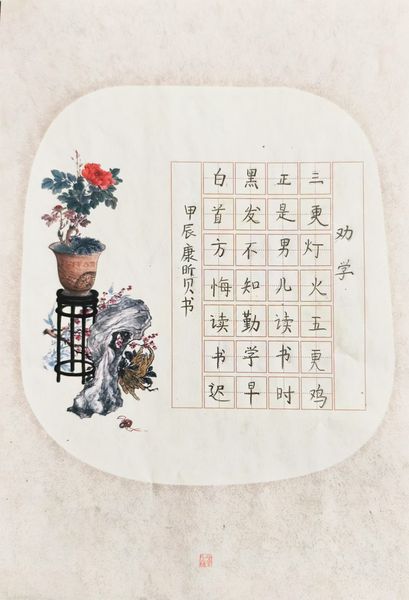 劝学
三更灯火五更鸡
正是男儿读书时
黑发不知勤学早
白首方悔读书迟
甲辰康昕贝书